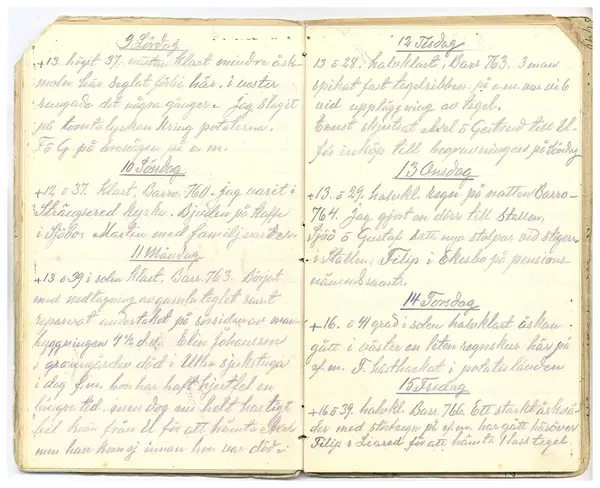 9 Lördag
+13 högst 37. västra klart mindre åsk-
moln har seglat förbi här, i väster
rungade det några gånger. Jag slagit
på tomta lyckan kring potaterna.
F o G på e.m.
10 Söndag
+12 o 37. Klart, Barro. 760. jag varit i
Strängsered kyrka. Bjuden på Kaffe
i Sjöbor Martin med familj
11 Måndag
+13 o 39 i solen Klart, Barr. 763. Börjat
med nedtagning av gamla teglet samt
reparerat undertaket på norsidan av man-
byggningen 4 ½ d.v. Elin Johansson
i död i Ulhn sjukstuga
i dag f.m. hon har haft hjärtfel en
längre tid men dog nu helt hastigt
bil kom från U för att hämta
men han kom ej innan hon var död.
12 Tisdag
13 o 28. halvklart, Barr 763. 3 man
spikat fast tegelribben. på e.m. var vi 6
vid uppläggning av tegel.
Ernst skjutsat Axel o Gertrud till Ul-
för inköp till begravningen på Söndag
13 Onsdag
+13. o 29. halvkl. regn på natten Barro-
764. Jag gjort en dörr till
o Gustal satt nya stolpar vid
i Stallen, Filip i Ekesbo på pensions-
nämndsamtr.
14 Torsdag
+16. o 41 grad i solen halvklart åskan
gått i väster en liten regnskur här på
ef.m. F. hästhackat i potatislanden
15 Fredag
+16 o 39. halvkl. Barr. 766. Ett starkt åskvä-
der med störtregn på ef.m. har gått häröver
Filip i Liared för att hämta 1 lass tegel.